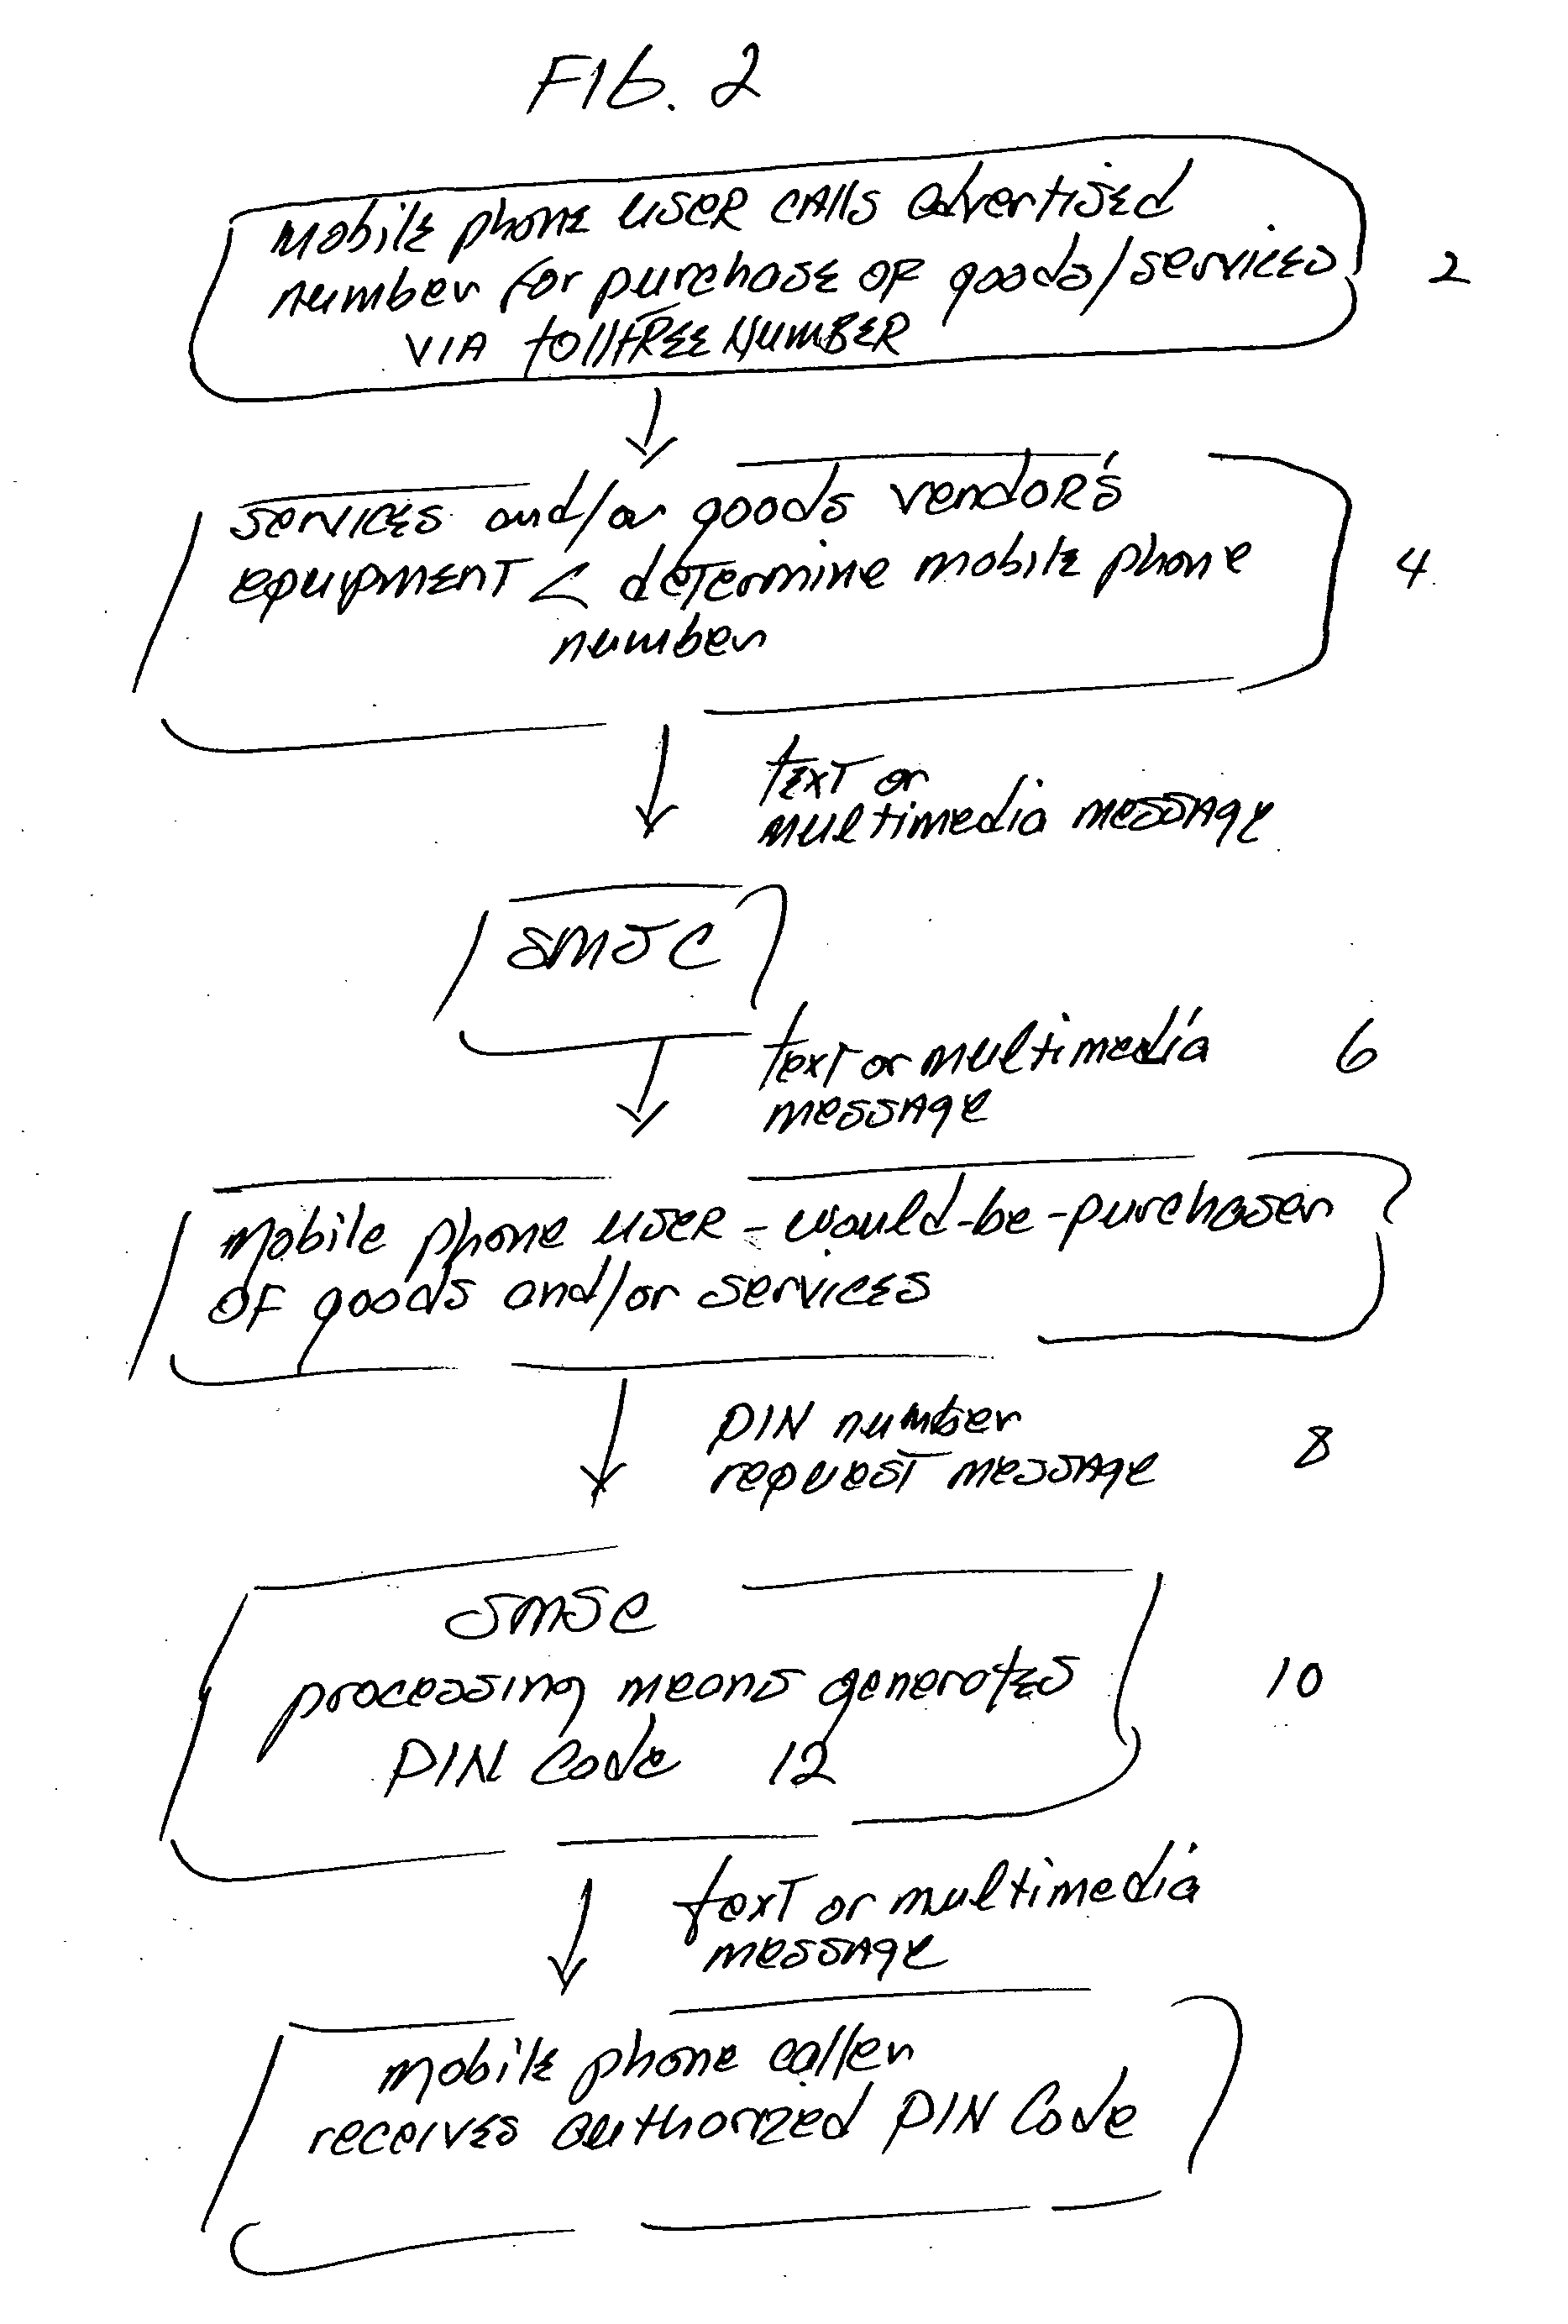 FIG. 2
Mobile phone user calls advertised
number for purchase of goods/services
2
via tollfree number
services and/or goods vendor's
equipment < determine mobile phone
4
number
text or
multimedia message
SMSC
text or multimedia
6
message
Mobile phone user - would-be-purchaser
of goods and/or services
PIN number
request message
8
SMSC
processing means generates
10
PIN Code 12
text or multimedia
message
mobile phone caller
receives authorized PIN Code